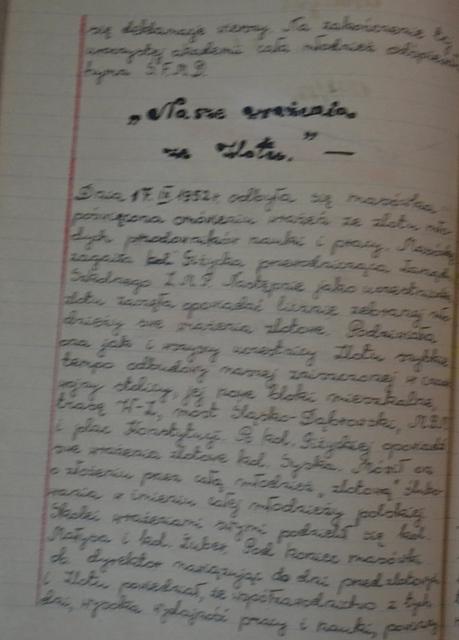 się deklamacje wierszy. Na zakończenie tej
uroczystej akademii cała młodzież odśpiewała
hymn Ś.F.M.D.
„Nasze wrażenia
ze Zlotu.” —
Dnia 17. IX 1952 r. odbyła się masówka
poświęcona omówieniu wrażeń ze zlotu mło-
dych przodowników nauki i pracy. Masówkę
zagaiła kol. Giżycka przewodnicząca Zarządu
Szkolnego Z.M.P. Następnie jako uczestniczka
zlotu zaczęła opowiadać licznie zebranej mło-
dzieży swe wrażenia zlotowe. Podziwiała
ona jak i wszyscy uczestnicy Zlotu szybkie
tempo odbudowy naszej zniszczonej w czasie
wojny stolicy, jej nowe bloki mieszkalne,
trasę W-Z, most Śląsko-Dąbrowski, M.D.M
i plac Konstytucji. Po kol. Giżyckiej opowiadał
swe wrażenia zlotowe kol. Mówił on
o złożeniu przez całą młodzież „zlotową” ślubo-
wania w imieniu całej młodzieży polskiej
wrażeniami swymi podzielił się kol.
Małysa i kol. Zuber. Pod koniec masówki
ob. dyrektor nawiązując do dni przedzlotowych
i Zlotu powiedział, że współzawodnictwo z tych
dni, wysoka wydajność pracy i nauki, powinny